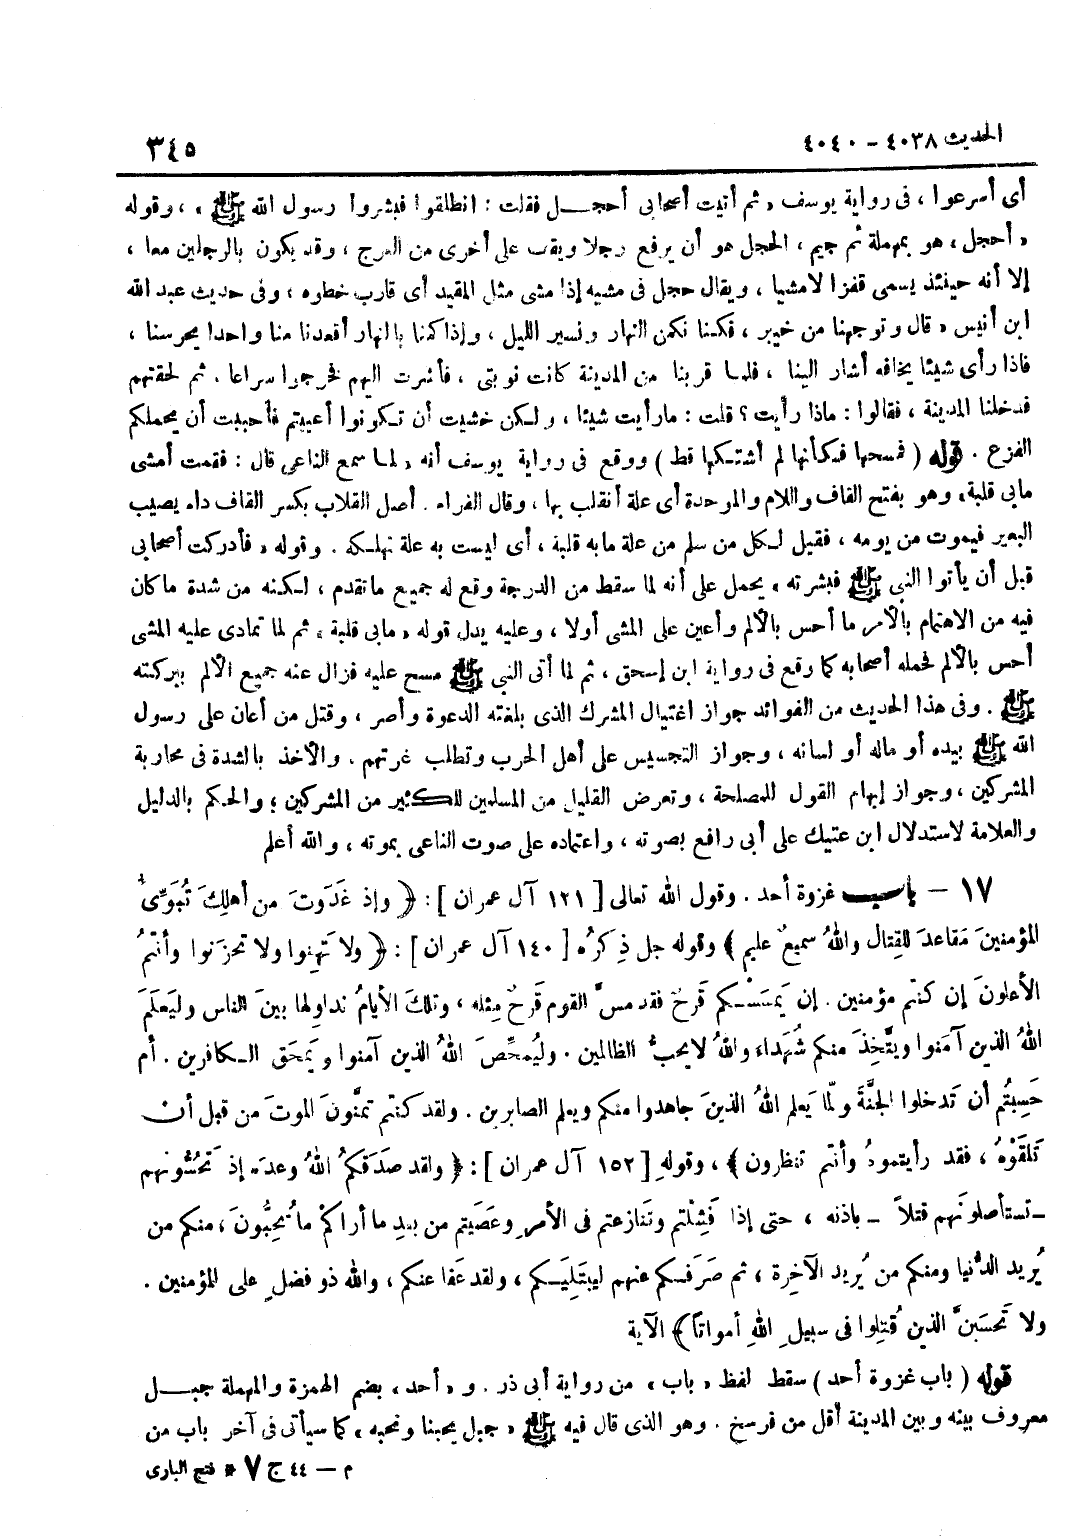 الحديث ٤٠٣٨ - ٤٠٤٠
٣٤٥
أى أسرعوا ، فى رواية يوسف « ثم أتيت أصحابى أحجـل فقلت : انطلقوا فبشروا رسول الله ﷺ » ، وقوله
« أحجل » هو بمهملة ثم جيم ، الحجل هو أن يرفع رجلا ويقف على أخرى من العرج ، وقد يكون بالرجلين معا ،
إلا أنه حينئذ يسمى قفزا لامشيا ، ويقال حجل فى مشيه إذا مشى مثل المقيد أى قارب خطوه ، وفى حديث عبد الله
ابن أنيس « قال وتوجهنا من خيبر ، فكنا نكمن النهار ونسير الليل ، وإذا كمنا بالنهار أقعدنا منا واحدا يحرسنا ،
فاذا رأى شيئا يخافه أشار الينا ، فلما قربنا من المدينة كانت نوبتى ، فأشرت اليهم فخرجوا سراعا . ثم لحقتهم
فدخلنا المدينة ، فقالوا : ماذا رأيت ؟ قلت : مارأيت شيئا ، ولكن خشيت أن تكونوا أعييتم فأحببت أن يحملكم
الفزع . قوله ( فمسحها فكأنها لم أشتكها قط ) ووقع فى رواية يوسف أنه « لما سمع الناعى قال : فقمت أمشى
مابى قلبة» وهو بفتح القاف واللام والموحدة أى علة أنقلب بها ، وقال الفراء . أصل القلاب بكسر القاف داء يصيب
البعير فيموت من يومه ، فقيل لكل من سلم من علة مابه قلبة ، أى ليست به علة تهلكه . وقوله « فأدركت أصحابى
قبل أن يأتوا النبى ﷺ فبشرته » يحمل على أنه لما سقط من الدرجة وقع له جميع ماتقدم ، لكنه من شدة ماكان
فيه من الاهتمام بالأمر ما أحس بالألم وأعين على المشى أولا ، وعليه يدل قوله « مابى قلبة » ثم لما تمادى عليه المشى
أحس بالألم فحمله أصحابه كما وقع فى رواية ابن إسحق ، ثم لما أتى النبى ﷺ مسح عليه فزال عنه جميع الألم ببركته
ﷺ . وفى هذا الحديث من الفوائد جواز اغتيال المشرك الذى بلغته الدعوة وأصر ، وقتل من أعان على رسول
الله ﷺ بيده أو ماله أو لسانه ، وجواز التجسيس على أهل الحرب وتطلب غرتهم . والأخذ بالشدة فى محاربة
المشركين ، وجواز إبهام القول للمصلحة ، وتعرض القليل من المسلمين للكثير من المشركين ؛ والحكم بالدليل
والعلامة لاستدلال ابن عتيك على أبى رافع بصوته ، واعتماده على صوت الناعى بموته ، والله أعلم
١٧ - باب غزوة أحد . وقول الله تعالى [ ١٢١ آل عمران ] : ﴿ وإذ غَدَوتَ من أهلِكَ تُبَوِّىُٔ
المؤمنينَ مَقاعدَ للقِتال واللهُ سميعٌ عليم ﴾ وقوله جل ذِكرُه [ ١٤٠ آل عمران ] : ﴿ ولا تَهِنوا ولا تحزَنوا وأنتُم
الأعلونَ إن كنتم مؤمنين . إن يَمسَسْكم قَرحٌ فقد مسَّ القوم قَرحٌ مِثله ، وتلكَ الأيامُ نداوِلها بينَ الناس وليَعلَمَ
اللهُ الذين آمَنوا ويتَّخِذَ منكم شُهَداء واللهُ لايحبُّ الظالمين . وليُمحِّصَ اللهُ الذين آمنوا ويَمحَق الكافرين . أم
حَسِبتُم أن تَدخلوا الجنَّةَ ولمّا يَعلم اللهُ الذينَ جاهدوا منكم ويعلم الصابرين . ولقد كنتم تمنَّونَ الموتَ من قبل أن
تَلقَوْهُ ، فقد رأيتموهُ وأنتم تنظرون ﴾ ، وقولهِ [ ١٥٢ آل عمران ] : ﴿ ولقد صدَقكمُ اللهُ وعدَه إذ تَحُسُّونهم
- تستأصلونَهم قتلاً - باذنه ، حتى إذا فَشِلتُم وتَنازعتم فى الأمرِ وعَصَيتم من بعدِ ما أراكمْ ماتُحِبُّونَ ، منكم من
يُريد الدُّنيا ومنكم من يُريد الآخِرة ، ثم صَرَفكم عنهم ليبتَلِيَكم ، ولقد عَفا عنكم ، والله ذو فضلٍ على المؤمنين .
ولا تَحسَبنَّ الذين قُتِلوا فى سبيلِ اللهِ أمواتاً ﴾ الآية
قوله ( باب غزوة أحد ) سقط لفظ « باب » من رواية أبى ذر . و « أحد » بضم الهمزة والمهملة جبـل
معروف بينه وبين المدينة أقل من فرسخ . وهو الذى قال فيه ﷺ « جبل يحبنا ونحبه » كما سيأتى فى آخر باب من
م - ٤٤ ج ٧ * فتح البارى